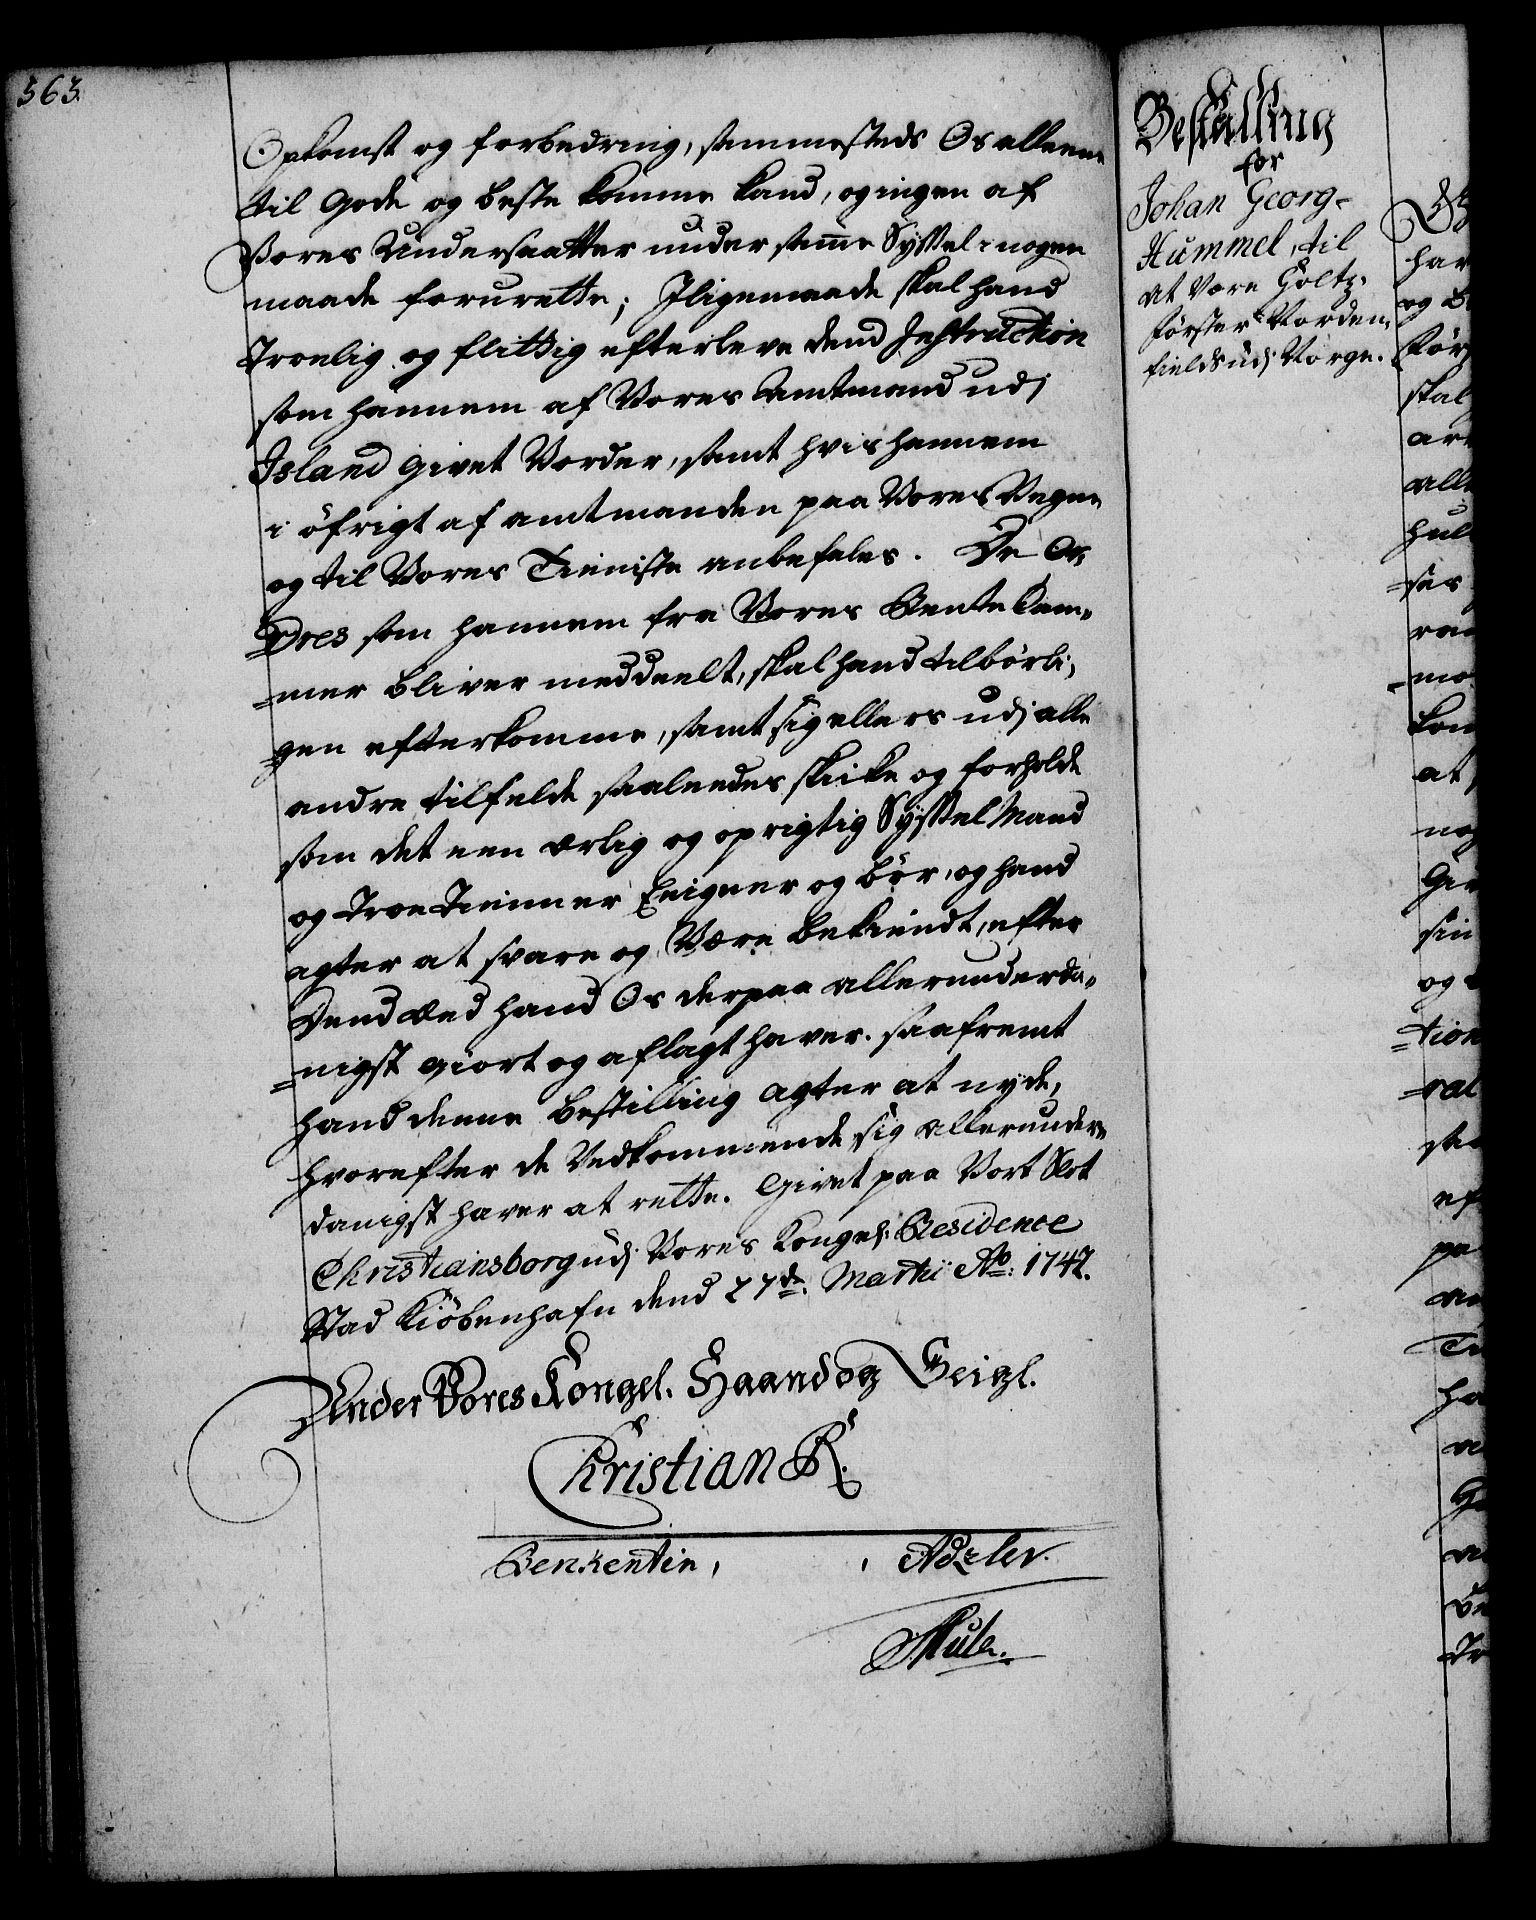 563.
Opkomst og forbedring, sammesteds Os alleene
til Gode og beste komme kand, og ingen af
Vores Undersaatter under samme Syssel i nogen
maade forurette; Jligemaade skal hand
Troelig og flittig efterleve dend Instruction
som hannem af Vores Amtmand udj
Island givet Vorder, samt hvis hannem
i öfrigt af amtmanden paa Vores Vegne
og til Vores Tieniste anbefales. De Or-
=dres som hannem fra Vores Rente Cam-
=mer bliver meddeelt, skal hand tilbörli-
=gen efterkomme, samt sig ellers udj alle
andre tilfelde saaleedes skicke og forholde
som det een ærlig og oprigtig Syssel Mand
og troe Tienner Eigner og bör, og hand
agter at svare og Være bekiendt, efter
Dend æed hand Os derpaa allerunderda-
=nigst giort og aflagt haver. saafremt
hand denne bestilling agter at nyde,
hvorefter de Vedkommende sig allerunder-
danigst haver at rette. Givet paa Vort Slot
Christiansborg udj Vores Kongel: Residence
Stad Kiöbenhafn dend 27de: Martii Ao: 1747.
Under Vores Kongel. Haand og Seigl.
Christian R.
Berkentin,
Adeler.
Bestalling
for
Johan Georg
Hummel, til
at Være Holtz-
förster Norden-
fields udj Norge.
har
skal
at
og
=tion